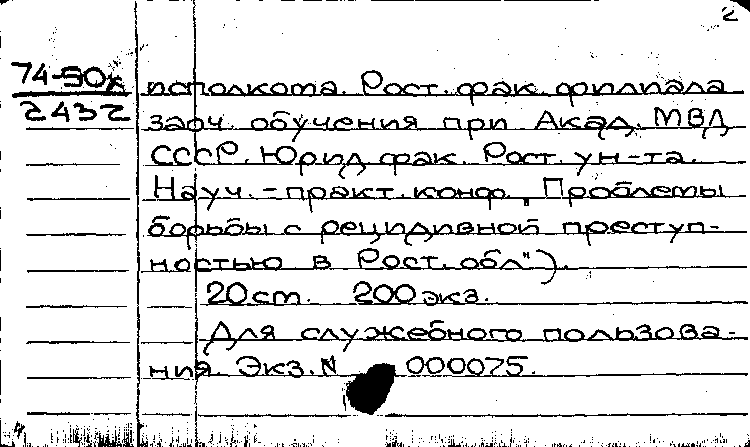 2
74-90к
2432
исполкома. Рост. фак. филиала
заоч. обучения при Акад. МВД
СССР. Юрид. фак. Рост. ун-та.
Науч.-практ. конф. „Проблемы
борьбы с рецидивной преступ-
ностью в Рост. обл").
20 ст. 200 экз.
Для служебного пользова-
ния. Экз. N 000075.